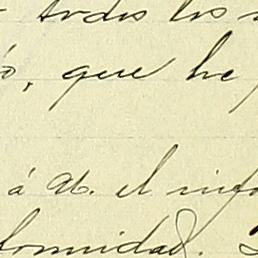 todos los
ó, que he
á V. el info
formidad.